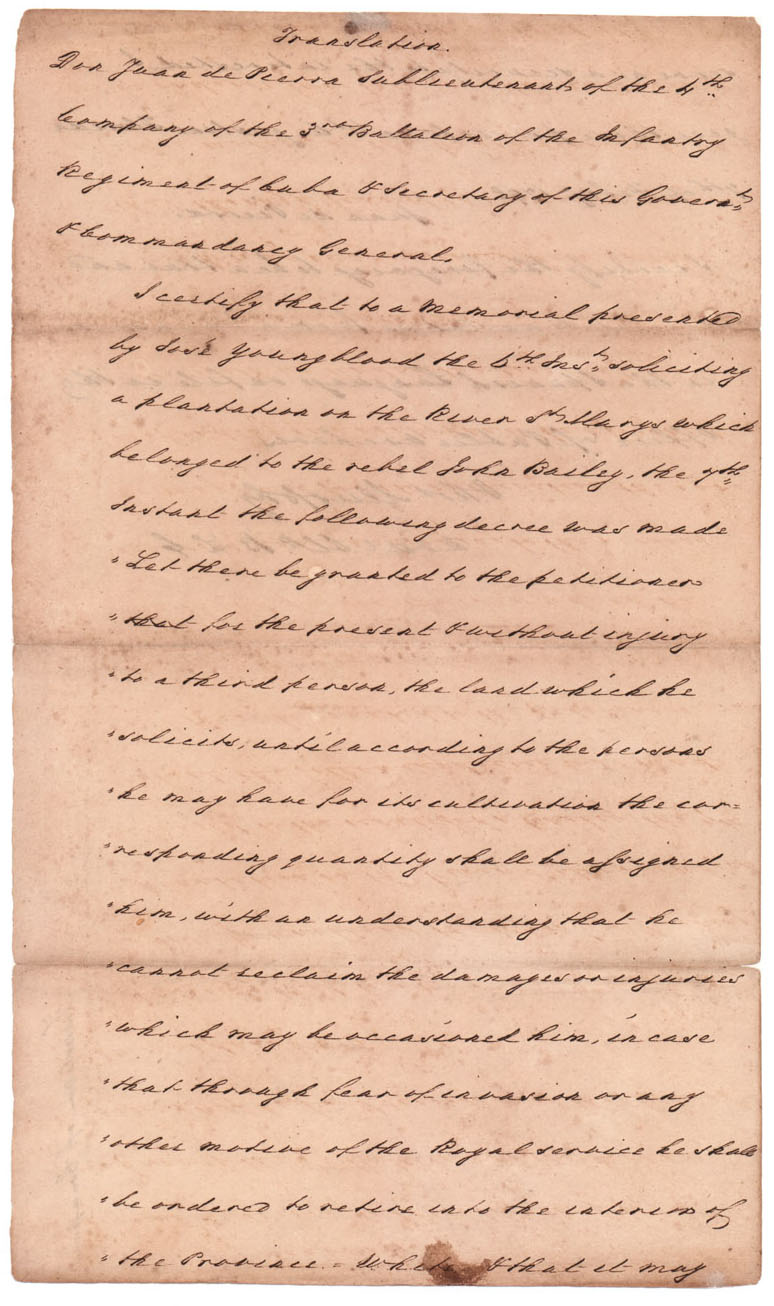 Translation.
Don Juan de Pierra Sublieutenant of the 4th
Company of the 3rd Battalion of the Infantry
Regiment of Cuba & Secretary of this Governt
& Commandancy General.
I certify that to a Memorial presented
by José Youngblood the 6th Inst. soliciting
a plantation on the River St. Marys which
belonged to the rebel John Bailey, the 7th
Instant the following decree was made
" Let there be granted to the petitioner
" that for the present & without injury
" to a third person, the land which he
" solicits, until according to the persons
" he may have for its cultivation the cor=
" responding quantity shall be assigned
" him, with an understanding that he
" cannot reclaim the damages or injuries
" which may be occasioned him, in case
" that through fear of invasion or any
" other motive of the Royal service he shall
" be ordered to retire into the interior of
" the Province. = White & that it may